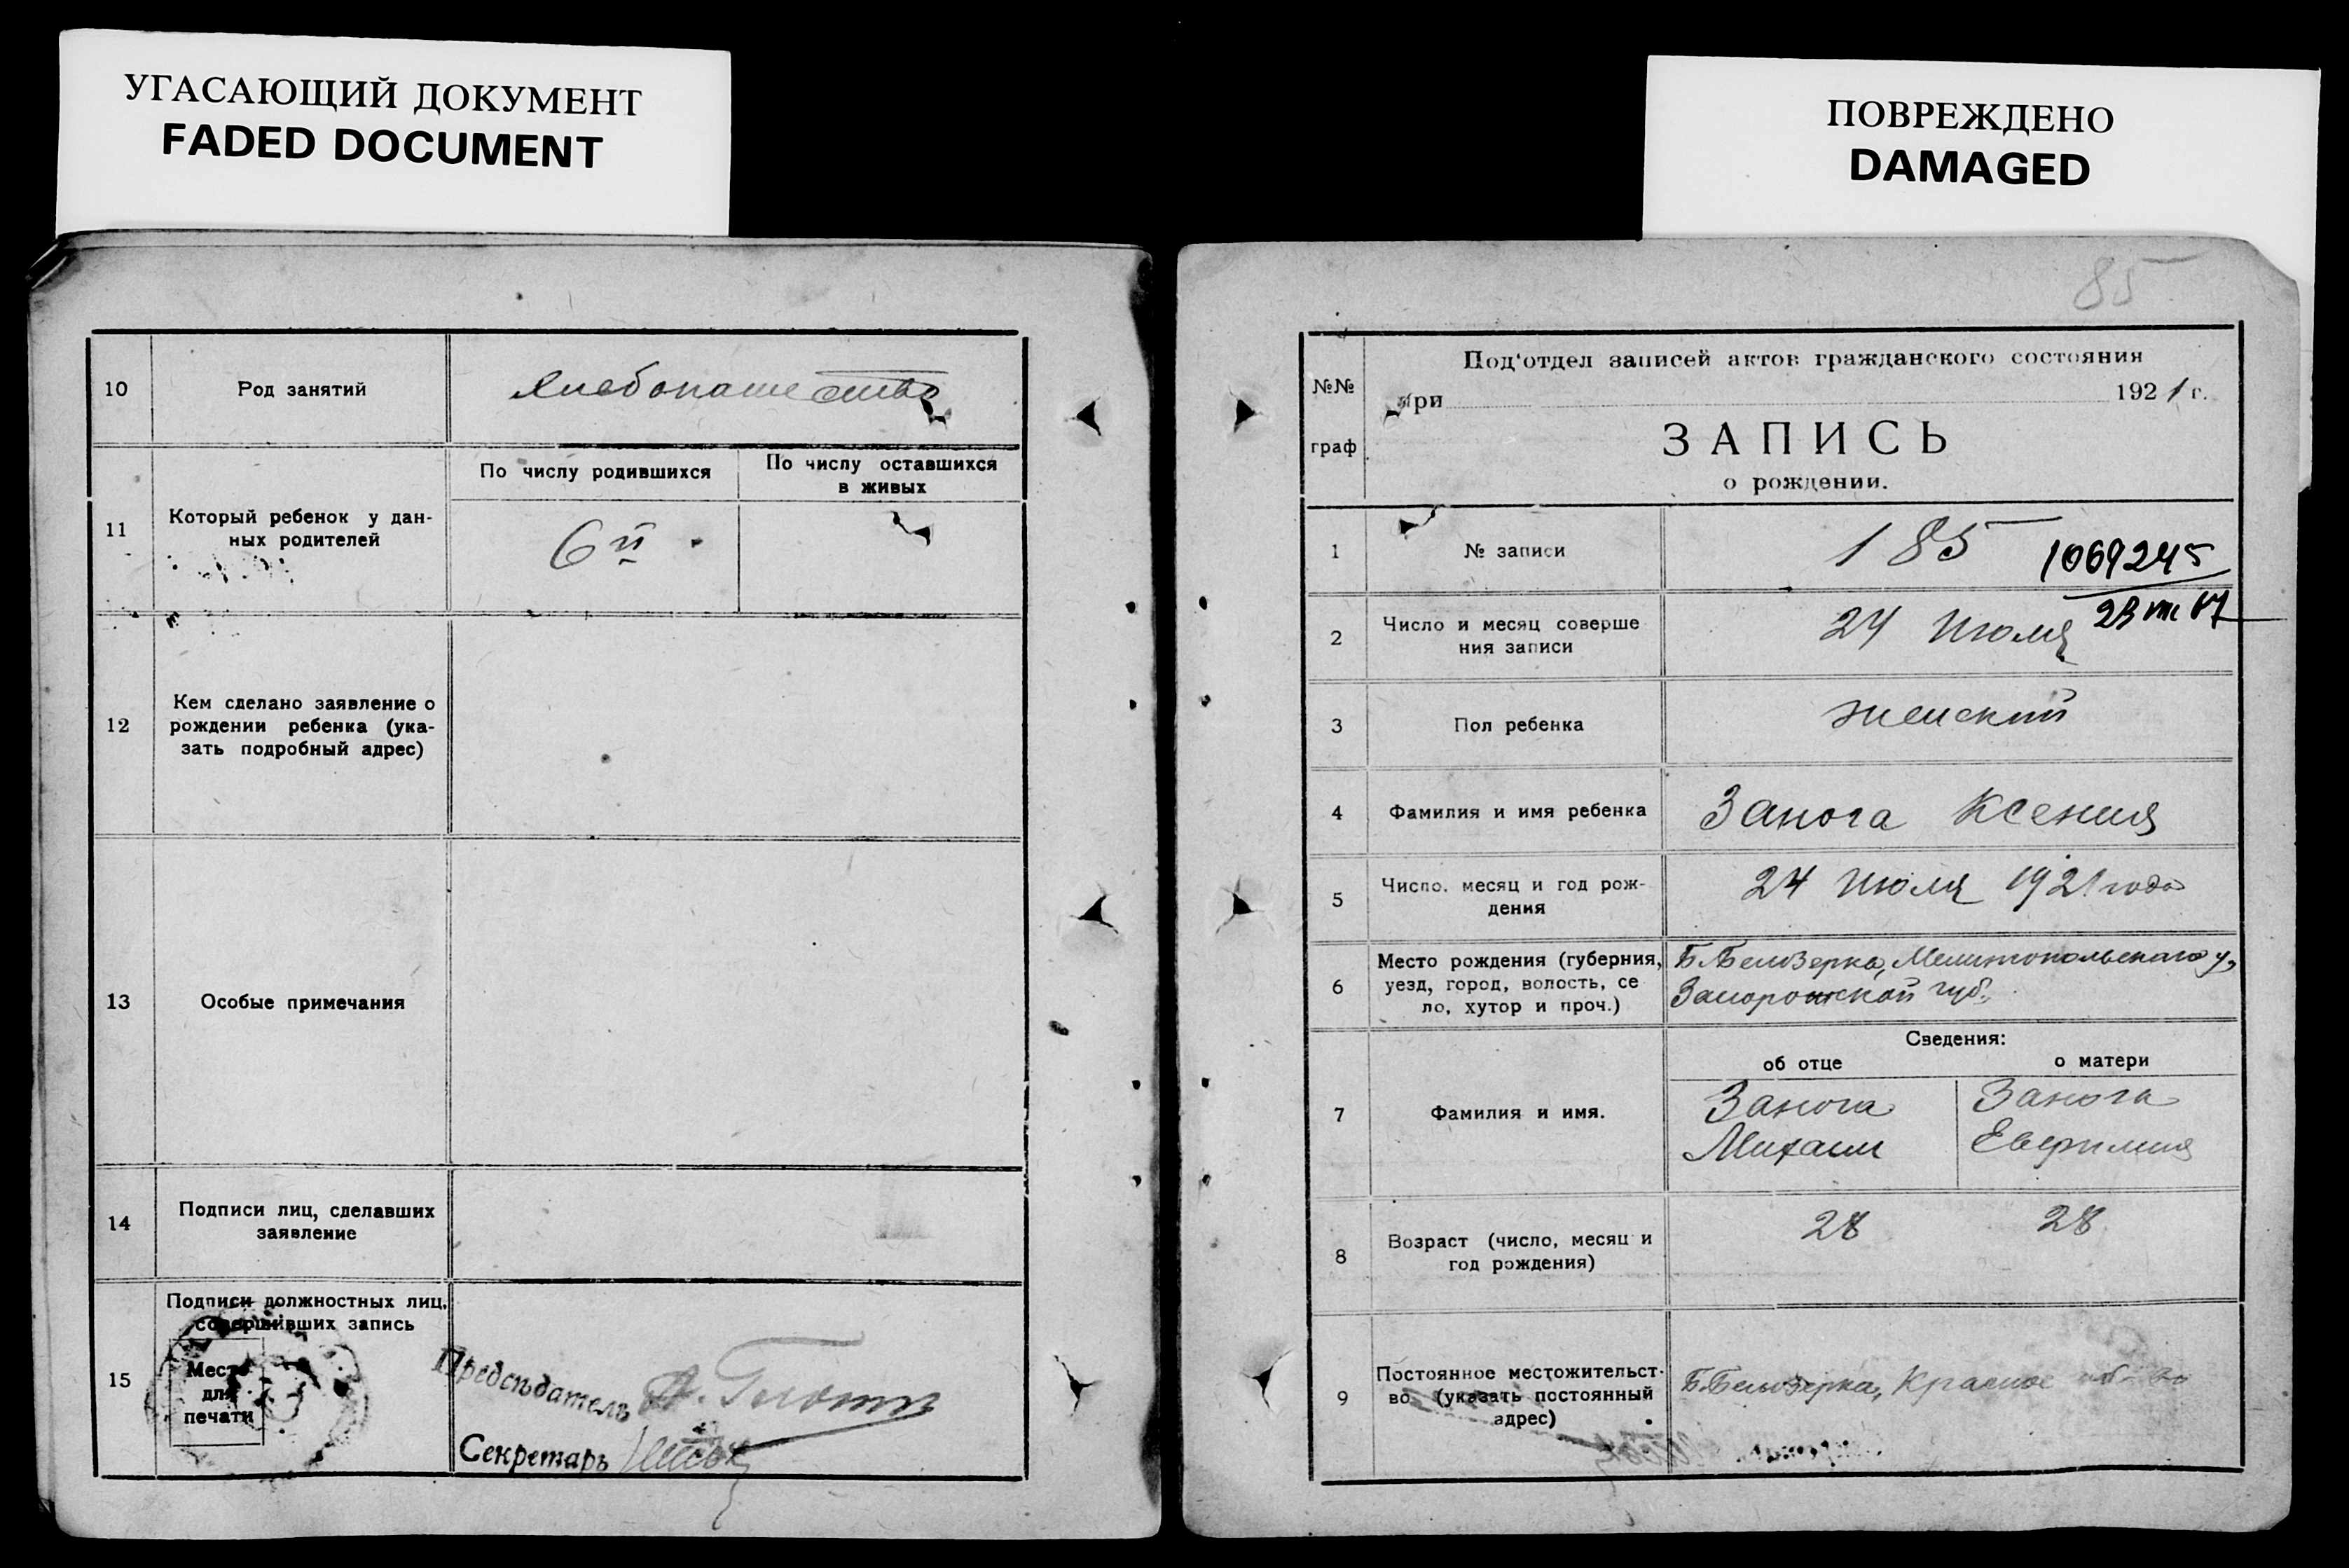 УГАСАЮЩИЙ ДОКУМЕНТ
FADED DOCUMENT
ПОВРЕЖДЕНО
DAMAGED
10
Род занятий
Хлебопашество
11
Который ребенок у дан-
ных родителей
По числу родившихся
По числу оставшихся
в живых
6й
12
Кем сделано заявление о
рождении ребенка (ука-
зать подробный адрес)
13
Особые примечания
14
Подписи лиц, сделавших
заявление
15
Подписи должностных лиц,
совершивших запись
Место
для
печати
Председатель
Секретарь
85
№№
граф
Под'отдел записей актов гражданского состояния
при 1921 г.
ЗАПИСЬ
о рождении.
1
№ записи
185
1069245
23 VIII 87
2
Число и месяц соверше
ния записи
24 Июля
3
Пол ребенка
женский
4
Фамилия и имя ребенка
Занога Ксения
5
Число. месяц и год рож-
дения
24 Июля 1921 года
6
Место рождения (губерния,
уезд, город, волость, се
ло, хутор и проч.)
Б.Белозерка, Мелитопольского у,
Запорожской губ.
7
Фамилия и имя.
Сведения:
об отце
о матери
Занога
Михаил
Занога
Евфимия
8
Возраст (число, месяц и
год рождения)
28
28
9
Постоянное местожительст-
во (указать постоянный
адрес)
Б.Белозерка, Красное